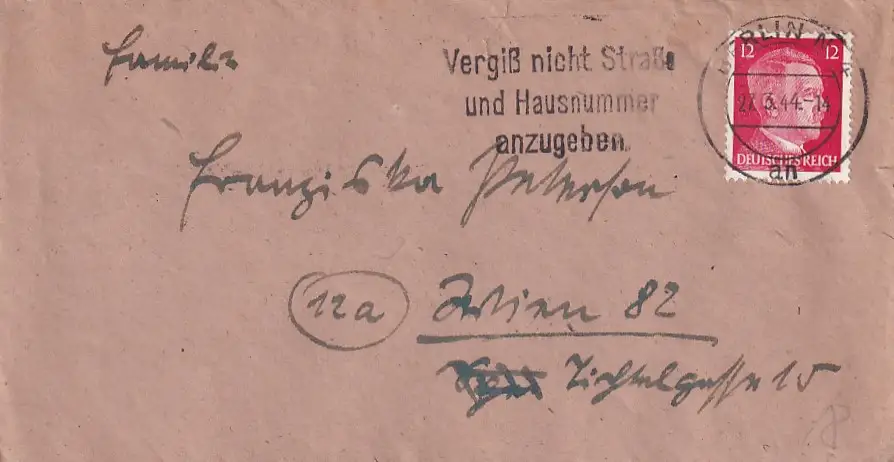 Familie
Vergiß nicht Straße
und Hausnummer
anzugeben.
12 12
BERLIN
27.3.44.-14
DEUTSCHES REICH
an
Franziska Peterson
12a Wien 82
Tichtelgasse 15